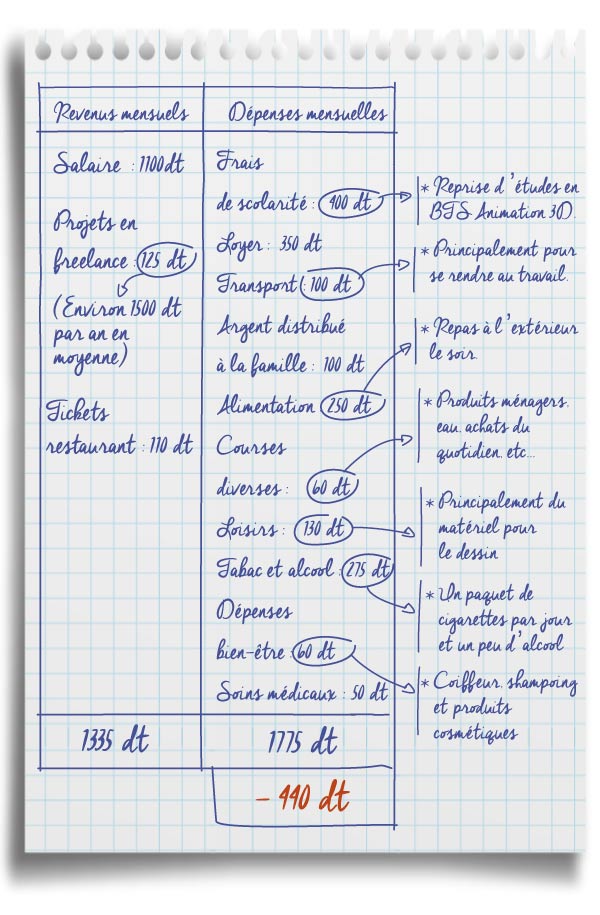 Revenus mensuels
Dépenses mensuelles
Salaire : 1100 dt
Projets en
freelance : 125 dt
(Environ 1500 dt
par an en
moyenne)
Tickets
restaurant : 110 dt
1335 dt
Frais
de scolarité : 400 dt
Loyer : 350 dt
Transport : 100 dt
Argent distribué
à la famille : 100 dt
Alimentation 250 dt
Courses
diverses : 60 dt
Loisirs : 130 dt
Tabac et alcool : 275 dt
Dépenses
bien-être : 60 dt
Soins médicaux : 50 dt
1775 dt
- 440 dt
* Reprise d'études en
BTS Animation 3D.
* Principalement pour
se rendre au travail.
* Repas à l'extérieur
le soir.
* Produits ménagers,
eau, achats du
quotidien, etc...
* Principalement du
matériel pour
le dessin
* Un paquet de
cigarettes par jour
et un peu d'alcool
* Coiffeur, shampoing
et produits
cosmétiques